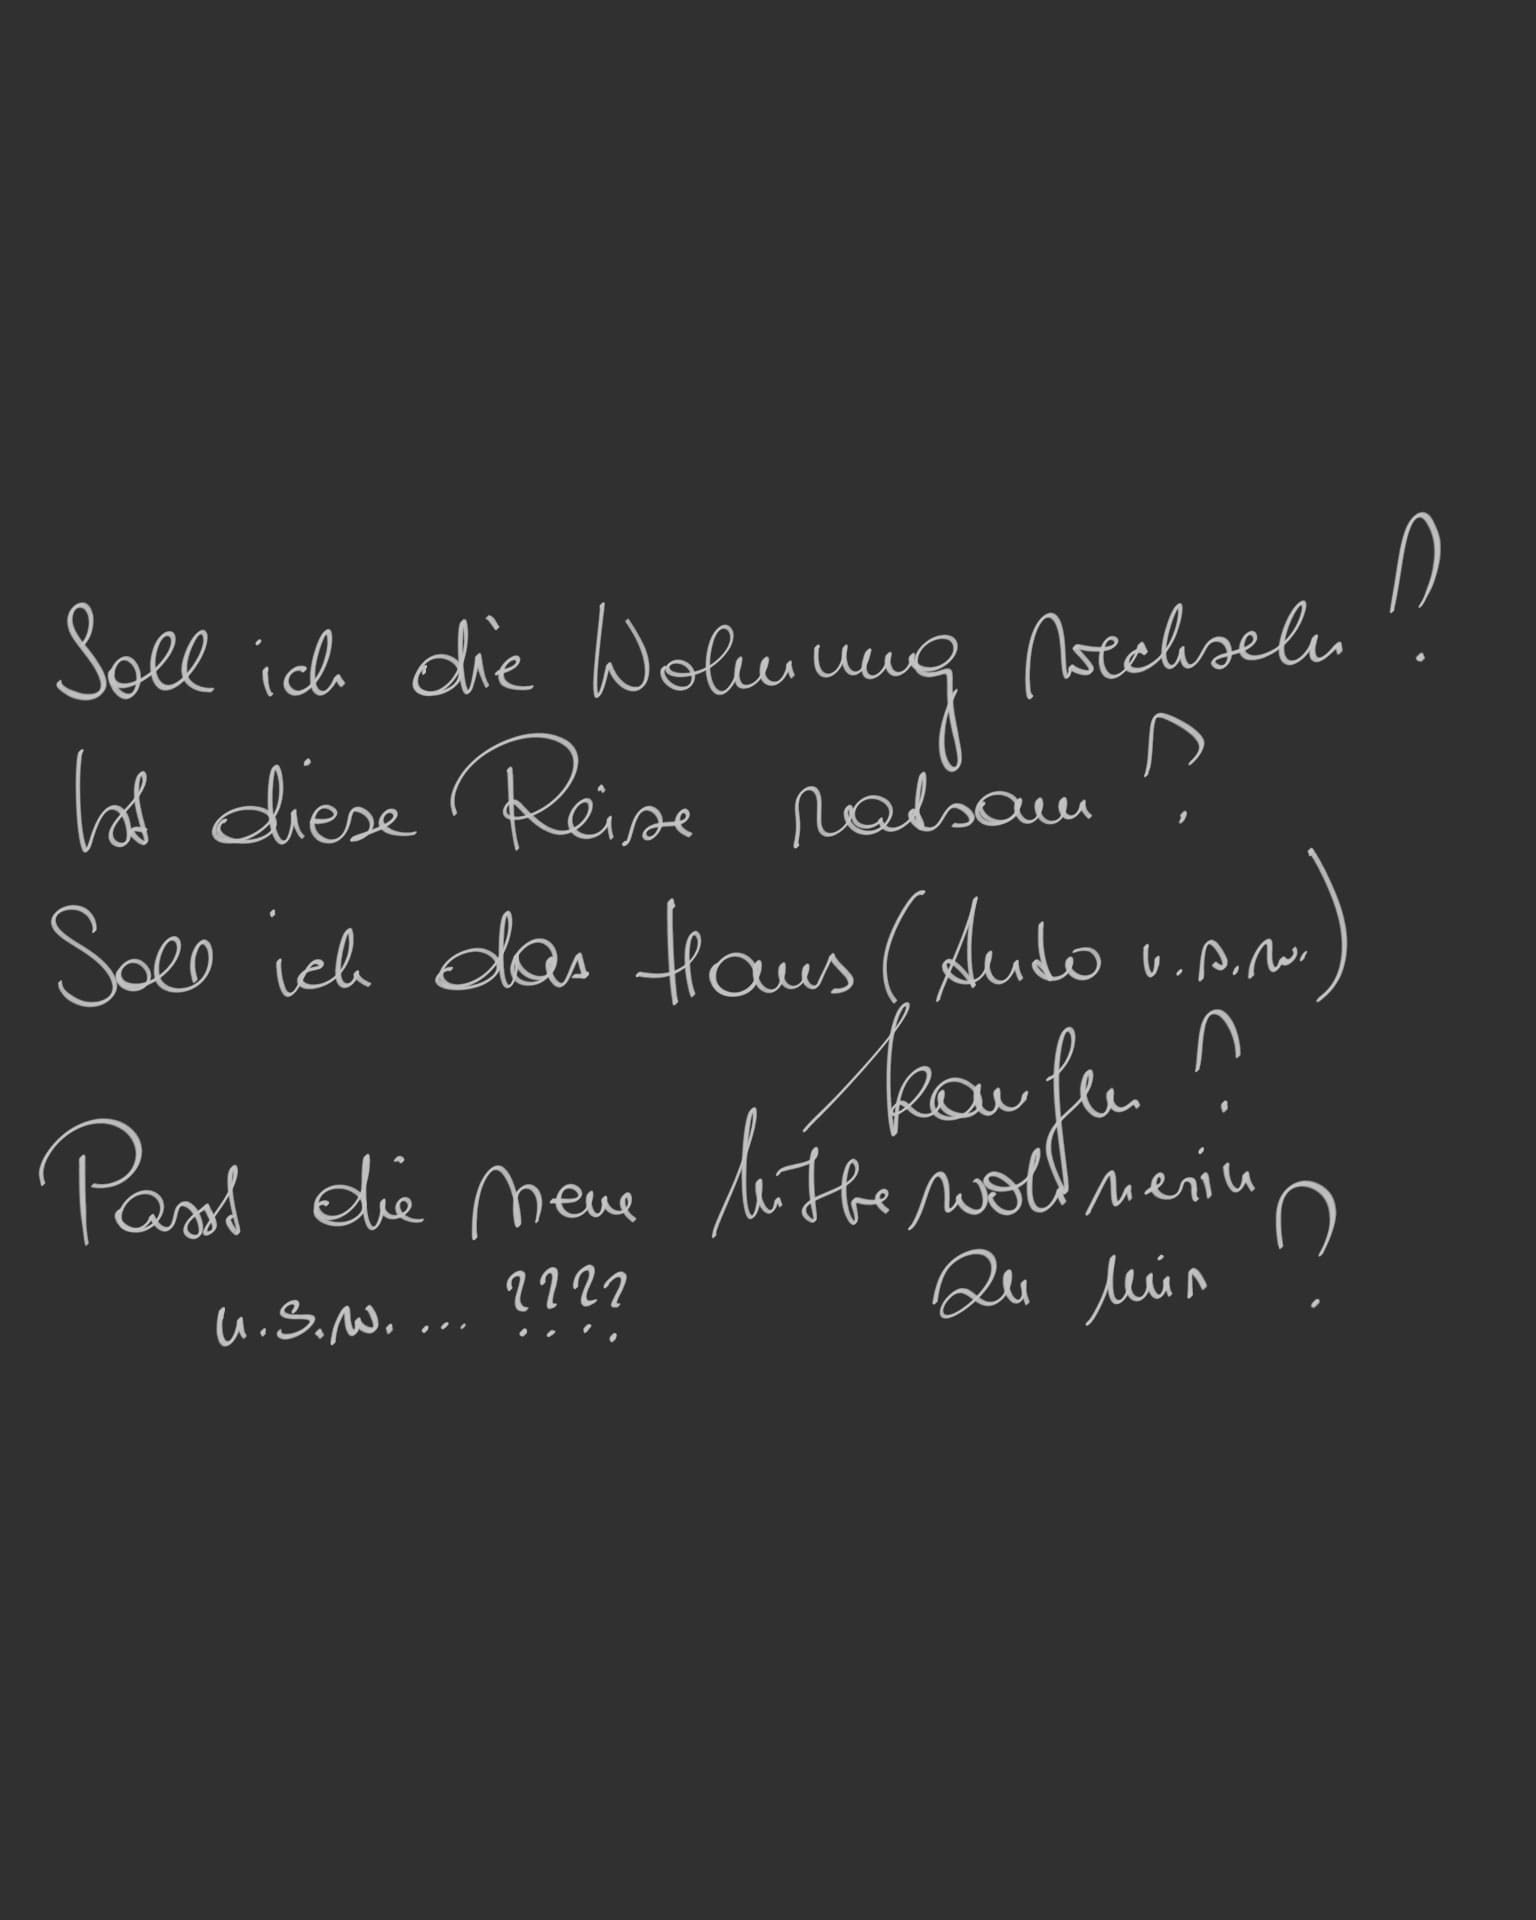 Soll ich die Wohnung wechseln?
Ist diese Reise ratsam?
Soll ich das Haus (Auto u.s.w.)
kaufen?
Passt die neue Mitbewohnerin
zu mir?
u.s.w. ... ????